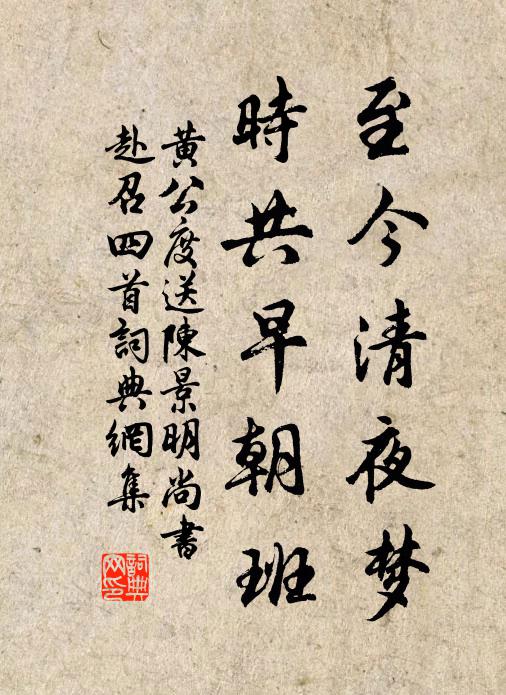 至今清夜梦
時共早朝班
黄公度送陳景明尚書
赴召四首詞典網集
詞典
网印